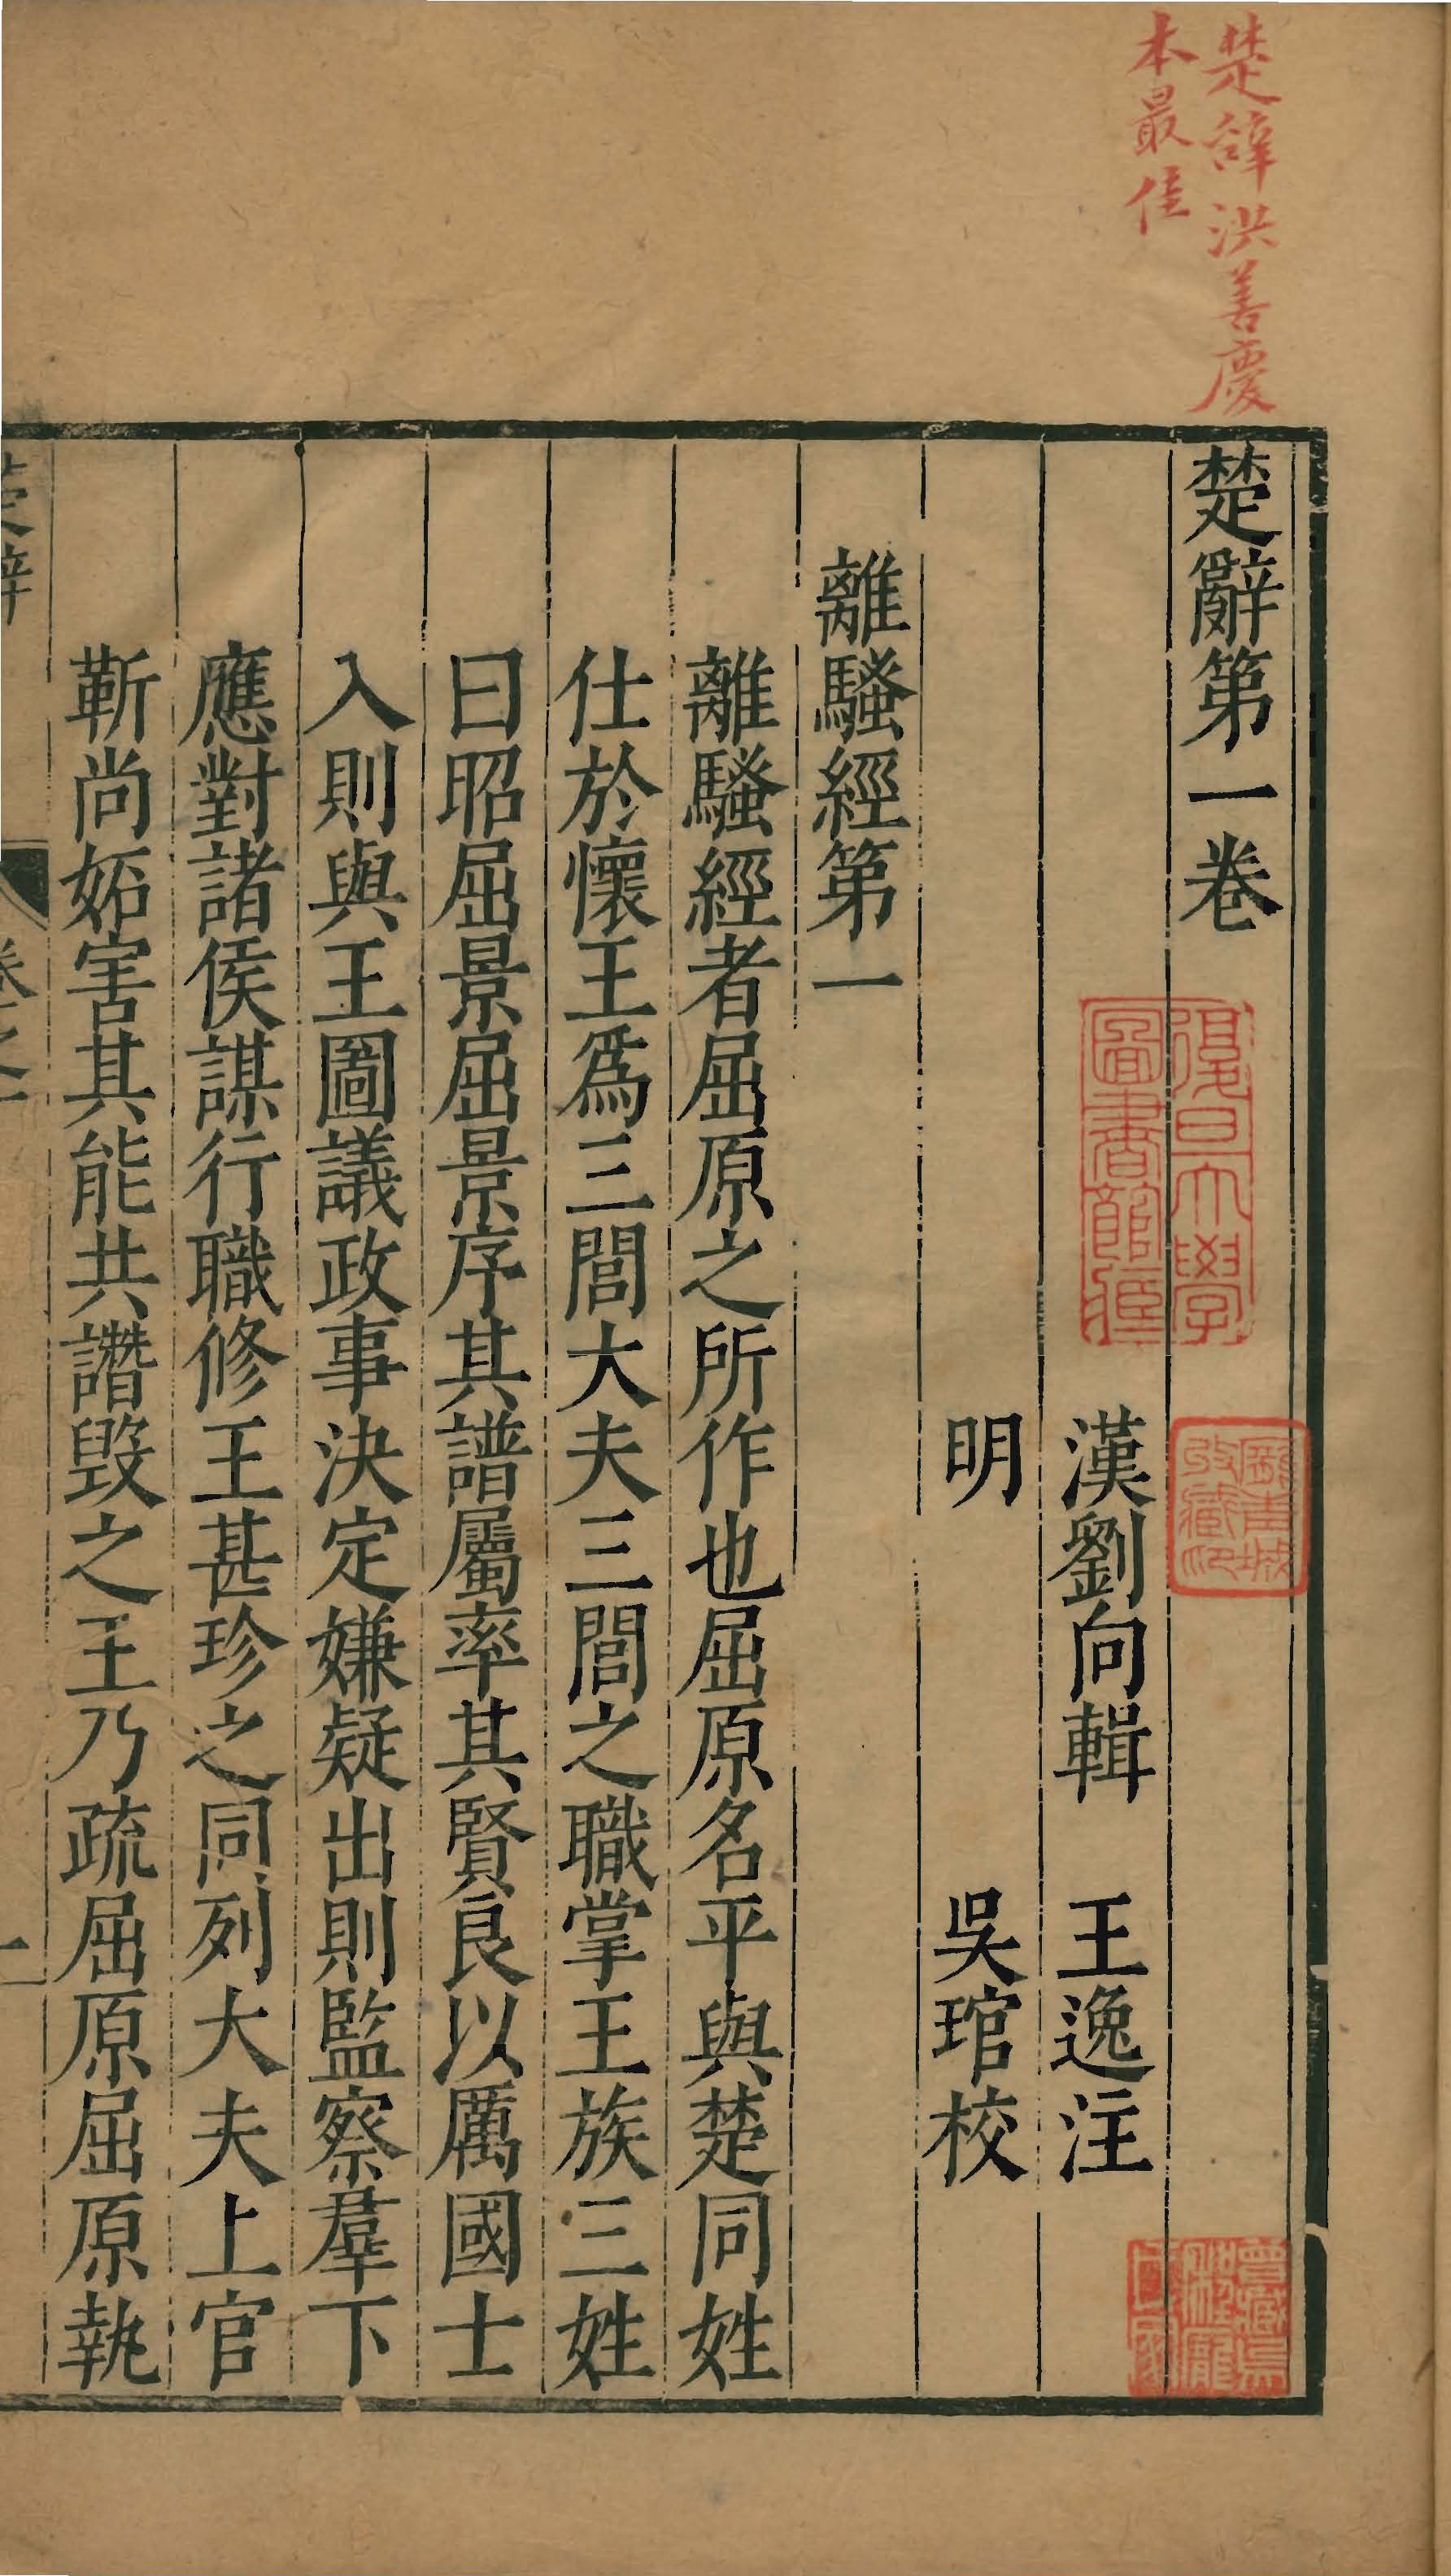 楚辭洪善慶
本最佳
楚辭第一卷
漢劉向輯　王逸注
明　吳琯校
離騷經第一
離騷經者屈原之所作也屈原名平與楚同姓
仕於懷王爲三閭大夫三閭之職掌王族三姓
曰昭屈景屈景序其譜屬率其賢良以厲國士
入則與王圖議政事決定嫌疑出則監察羣下
應對諸侯謀行職修王甚珍之同列大夫上官
靳尚妬害其能共譖毀之王乃疏屈原屈原執
復旦大學
圖書館藏